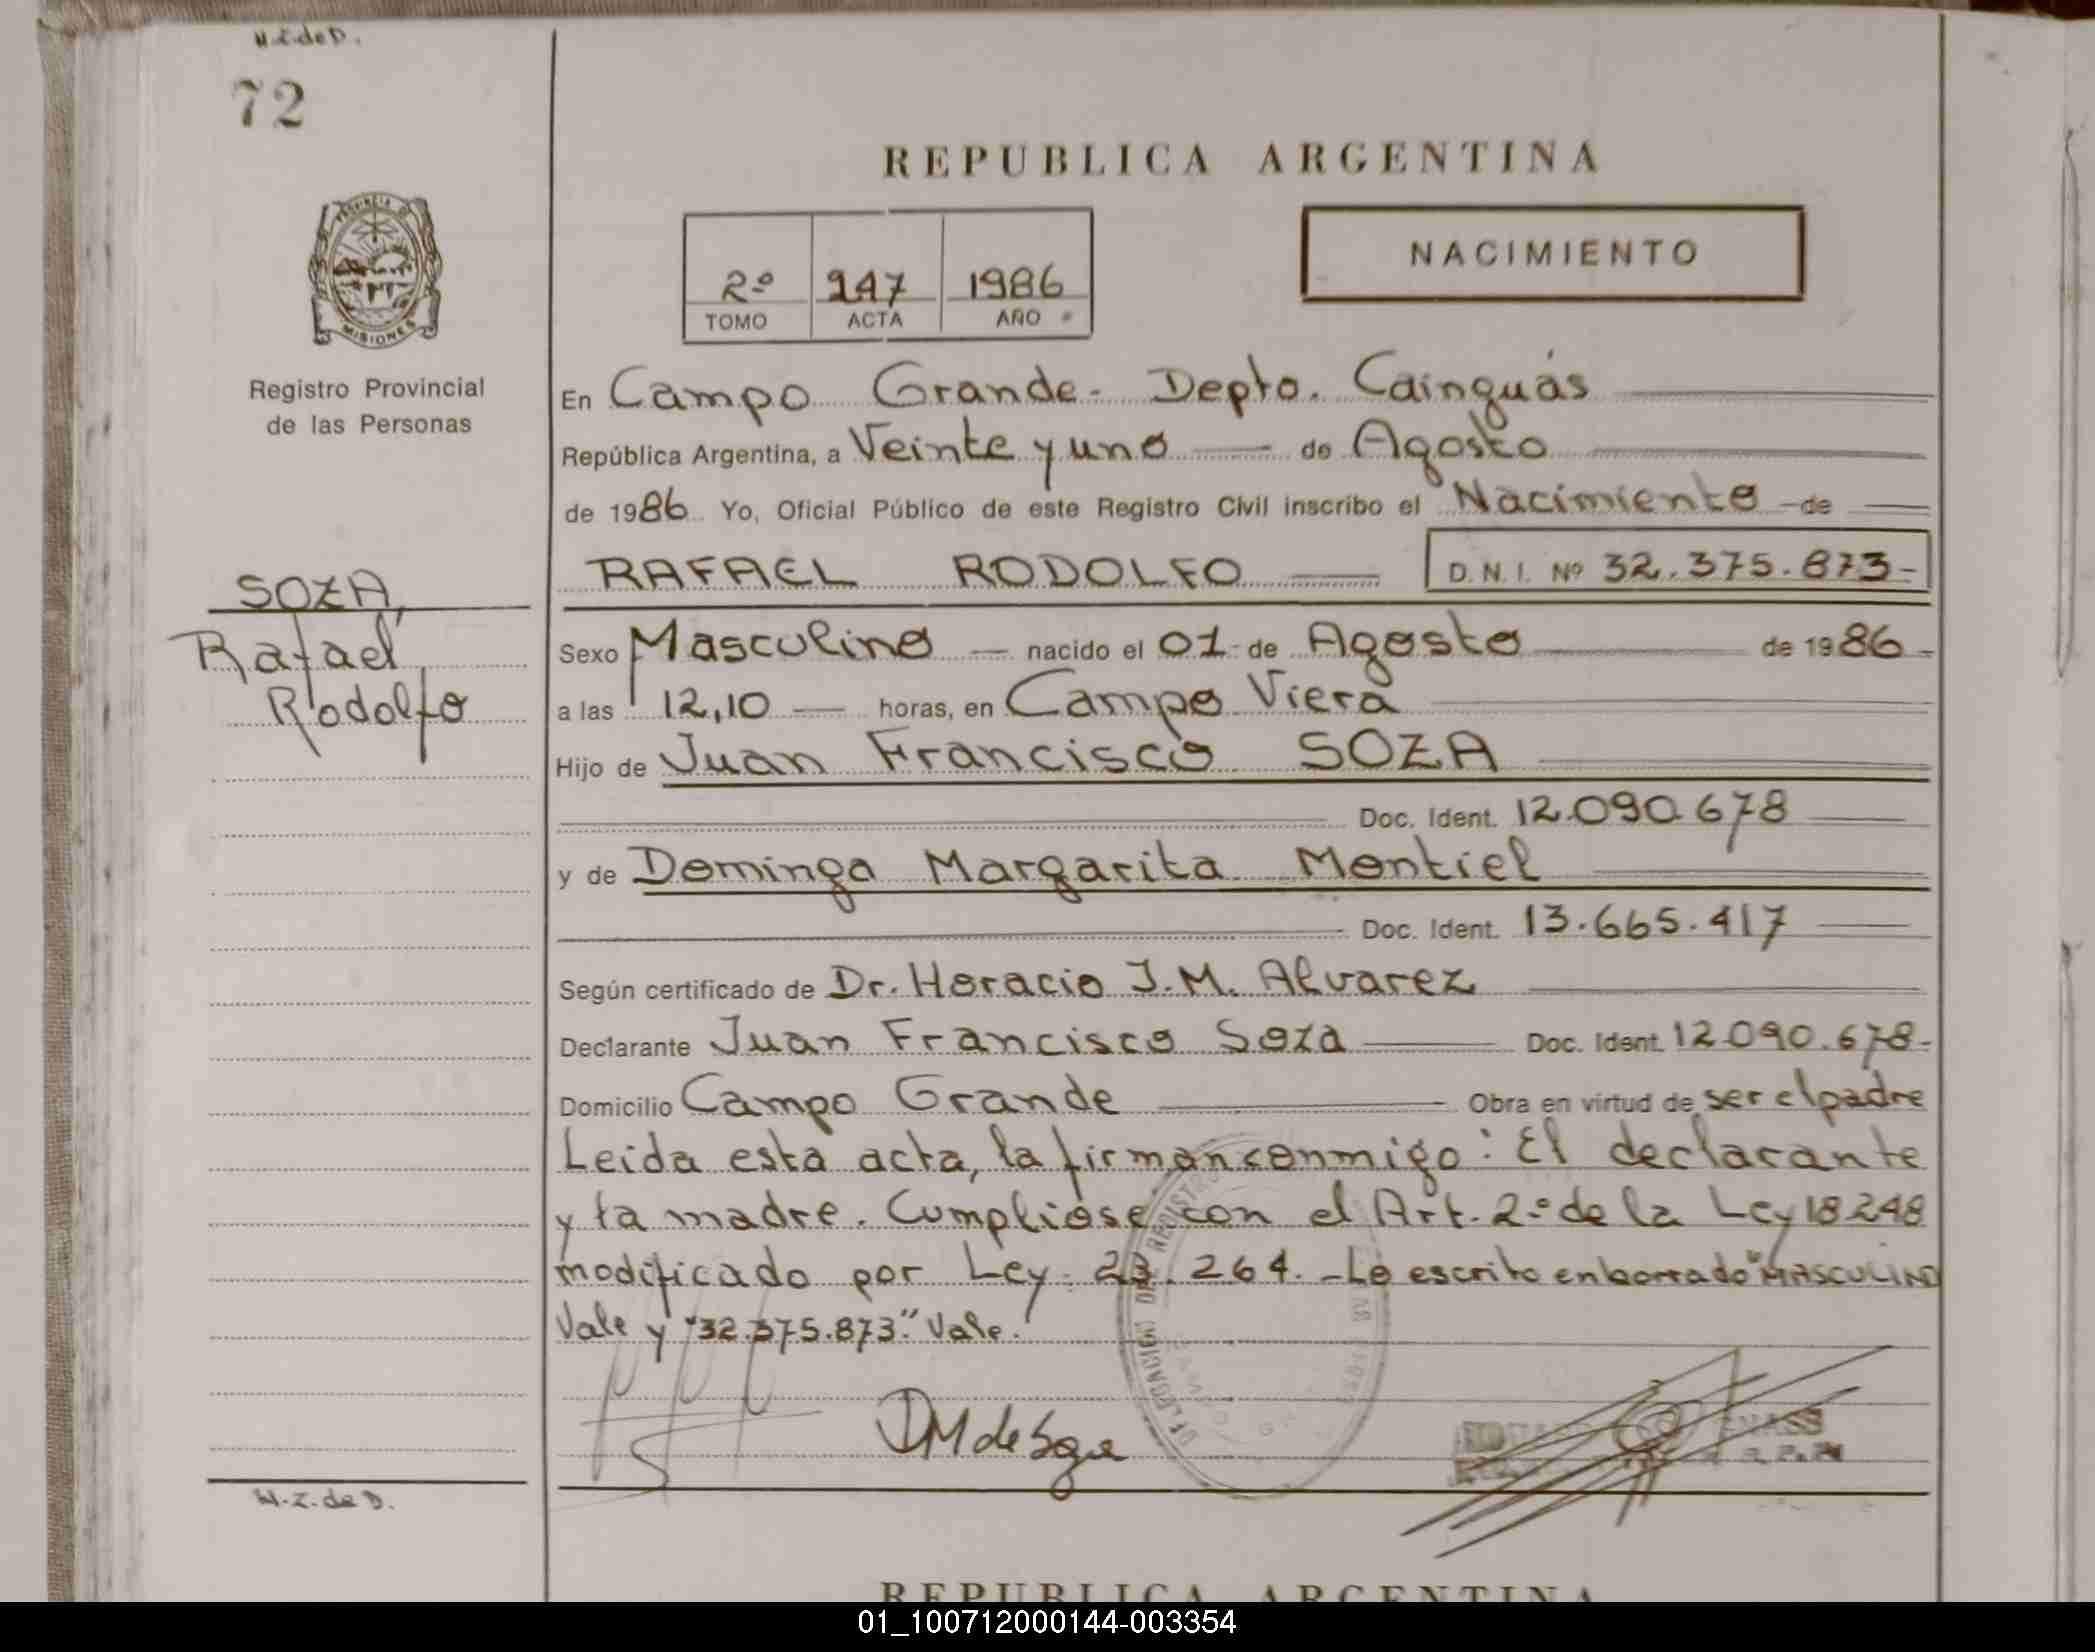 N.Z.deD.
72
REPUBLICA ARGENTINA
NACIMIENTO
2º 247 1986
TOMO ACTA AÑO
PROVINCIA DE
MISIONES
Registro Provincial
de las Personas
En Campo Grande - Depto. Cainguás
República Argentina, a Veinte y uno de Agosto
de 1986 Yo, Oficial Público de este Registro Civil inscribo el Nacimiento de
RAFAEL RODOLFO D.N.I. Nº 32.375.873-
SOZA,
Rafael
Rodolfo
Sexo Masculino nacido el 01 de Agosto de 1986
a las 12,10 horas, en Campo Viera
Hijo de Juan Francisco SOZA
Doc. Ident. 12.090.678
y de Dominga Margarita Montiel
Doc. Ident. 13.665.417
Según certificado de Dr. Horacio J.M. Alvarez
Declarante Juan Francisco Soza Doc. Ident. 12.090.678-
Domicilio Campo Grande Obra en virtud de ser el padre
Leida esta acta, la firman conmigo: El declarante
y la madre. Cumplióse con el Art. 2º de la Ley 18248
modificado por Ley 23.264. - Lo escrito enborrado "MASCULINO
Vale y "32.375.873." Vale.
DM de Soza
N.Z.deD.
REPUBLICA ARGENTINA
01_100712000144-003354